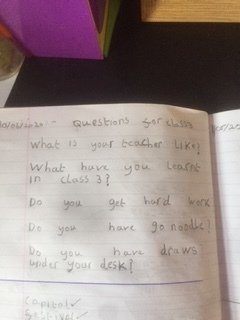 10/06/2020 - Questions for class3
What is your teacher like?
What have you learnt
in class 3?
Do you get hard work
Do you have go noodle?
Do you have draws
under your desk?
capital ✓